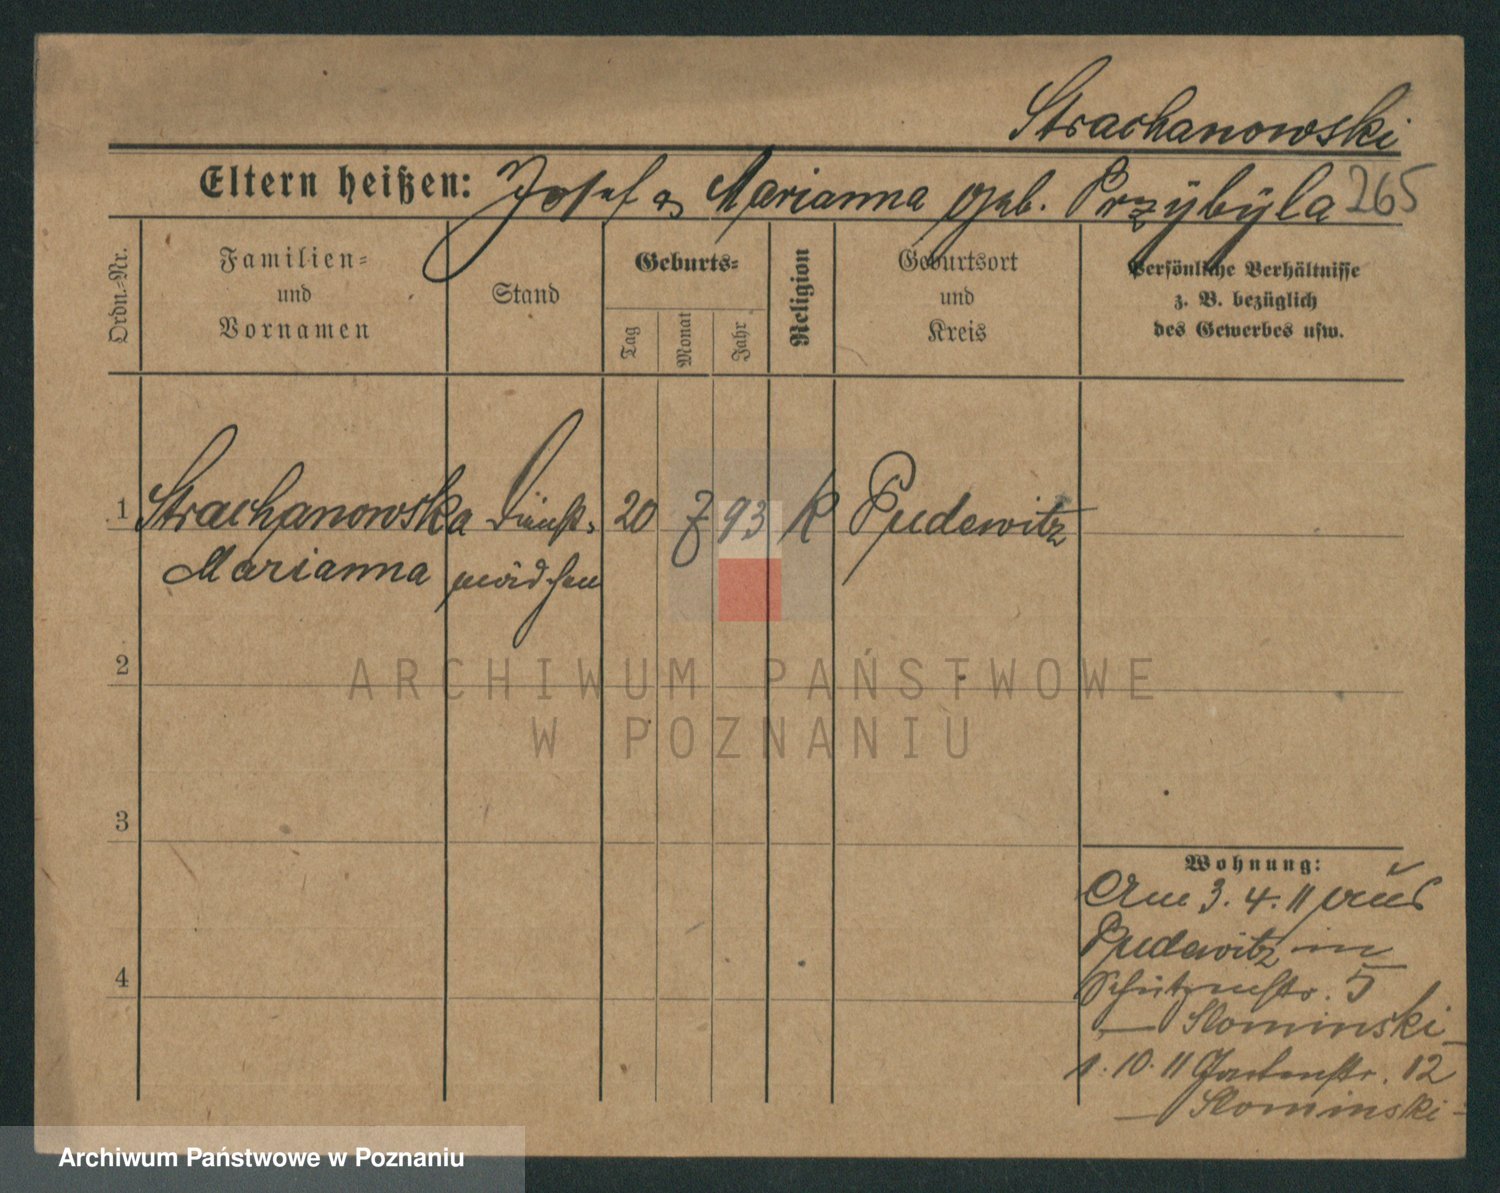 Strachanowski
Eltern heißen: Josef u Marianna geb. Przybyla 265
Ordn.-Nr.
Familien-
und
Vornamen
Stand
Geburts-
Tag
Monat
Jahr
Religion
Geburtsort
und
Kreis
Persönliche Verhältnisse
z. B. bezüglich
des Gewerbes usw.
1 Strachanowska Dienst- 20 7 93 k Pudewitz
Marianna mädchen
2
3
4
ARCHIWUM PAŃSTWOWE
W POZNANIU
Wohnung:
Am 3. 4. 11 aus
Pudewitz in
Schützenstr. 5
— Slominski
1. 10. 11 Gartenstr. 12
— Slominski -
Archiwum Państwowe w Poznaniu